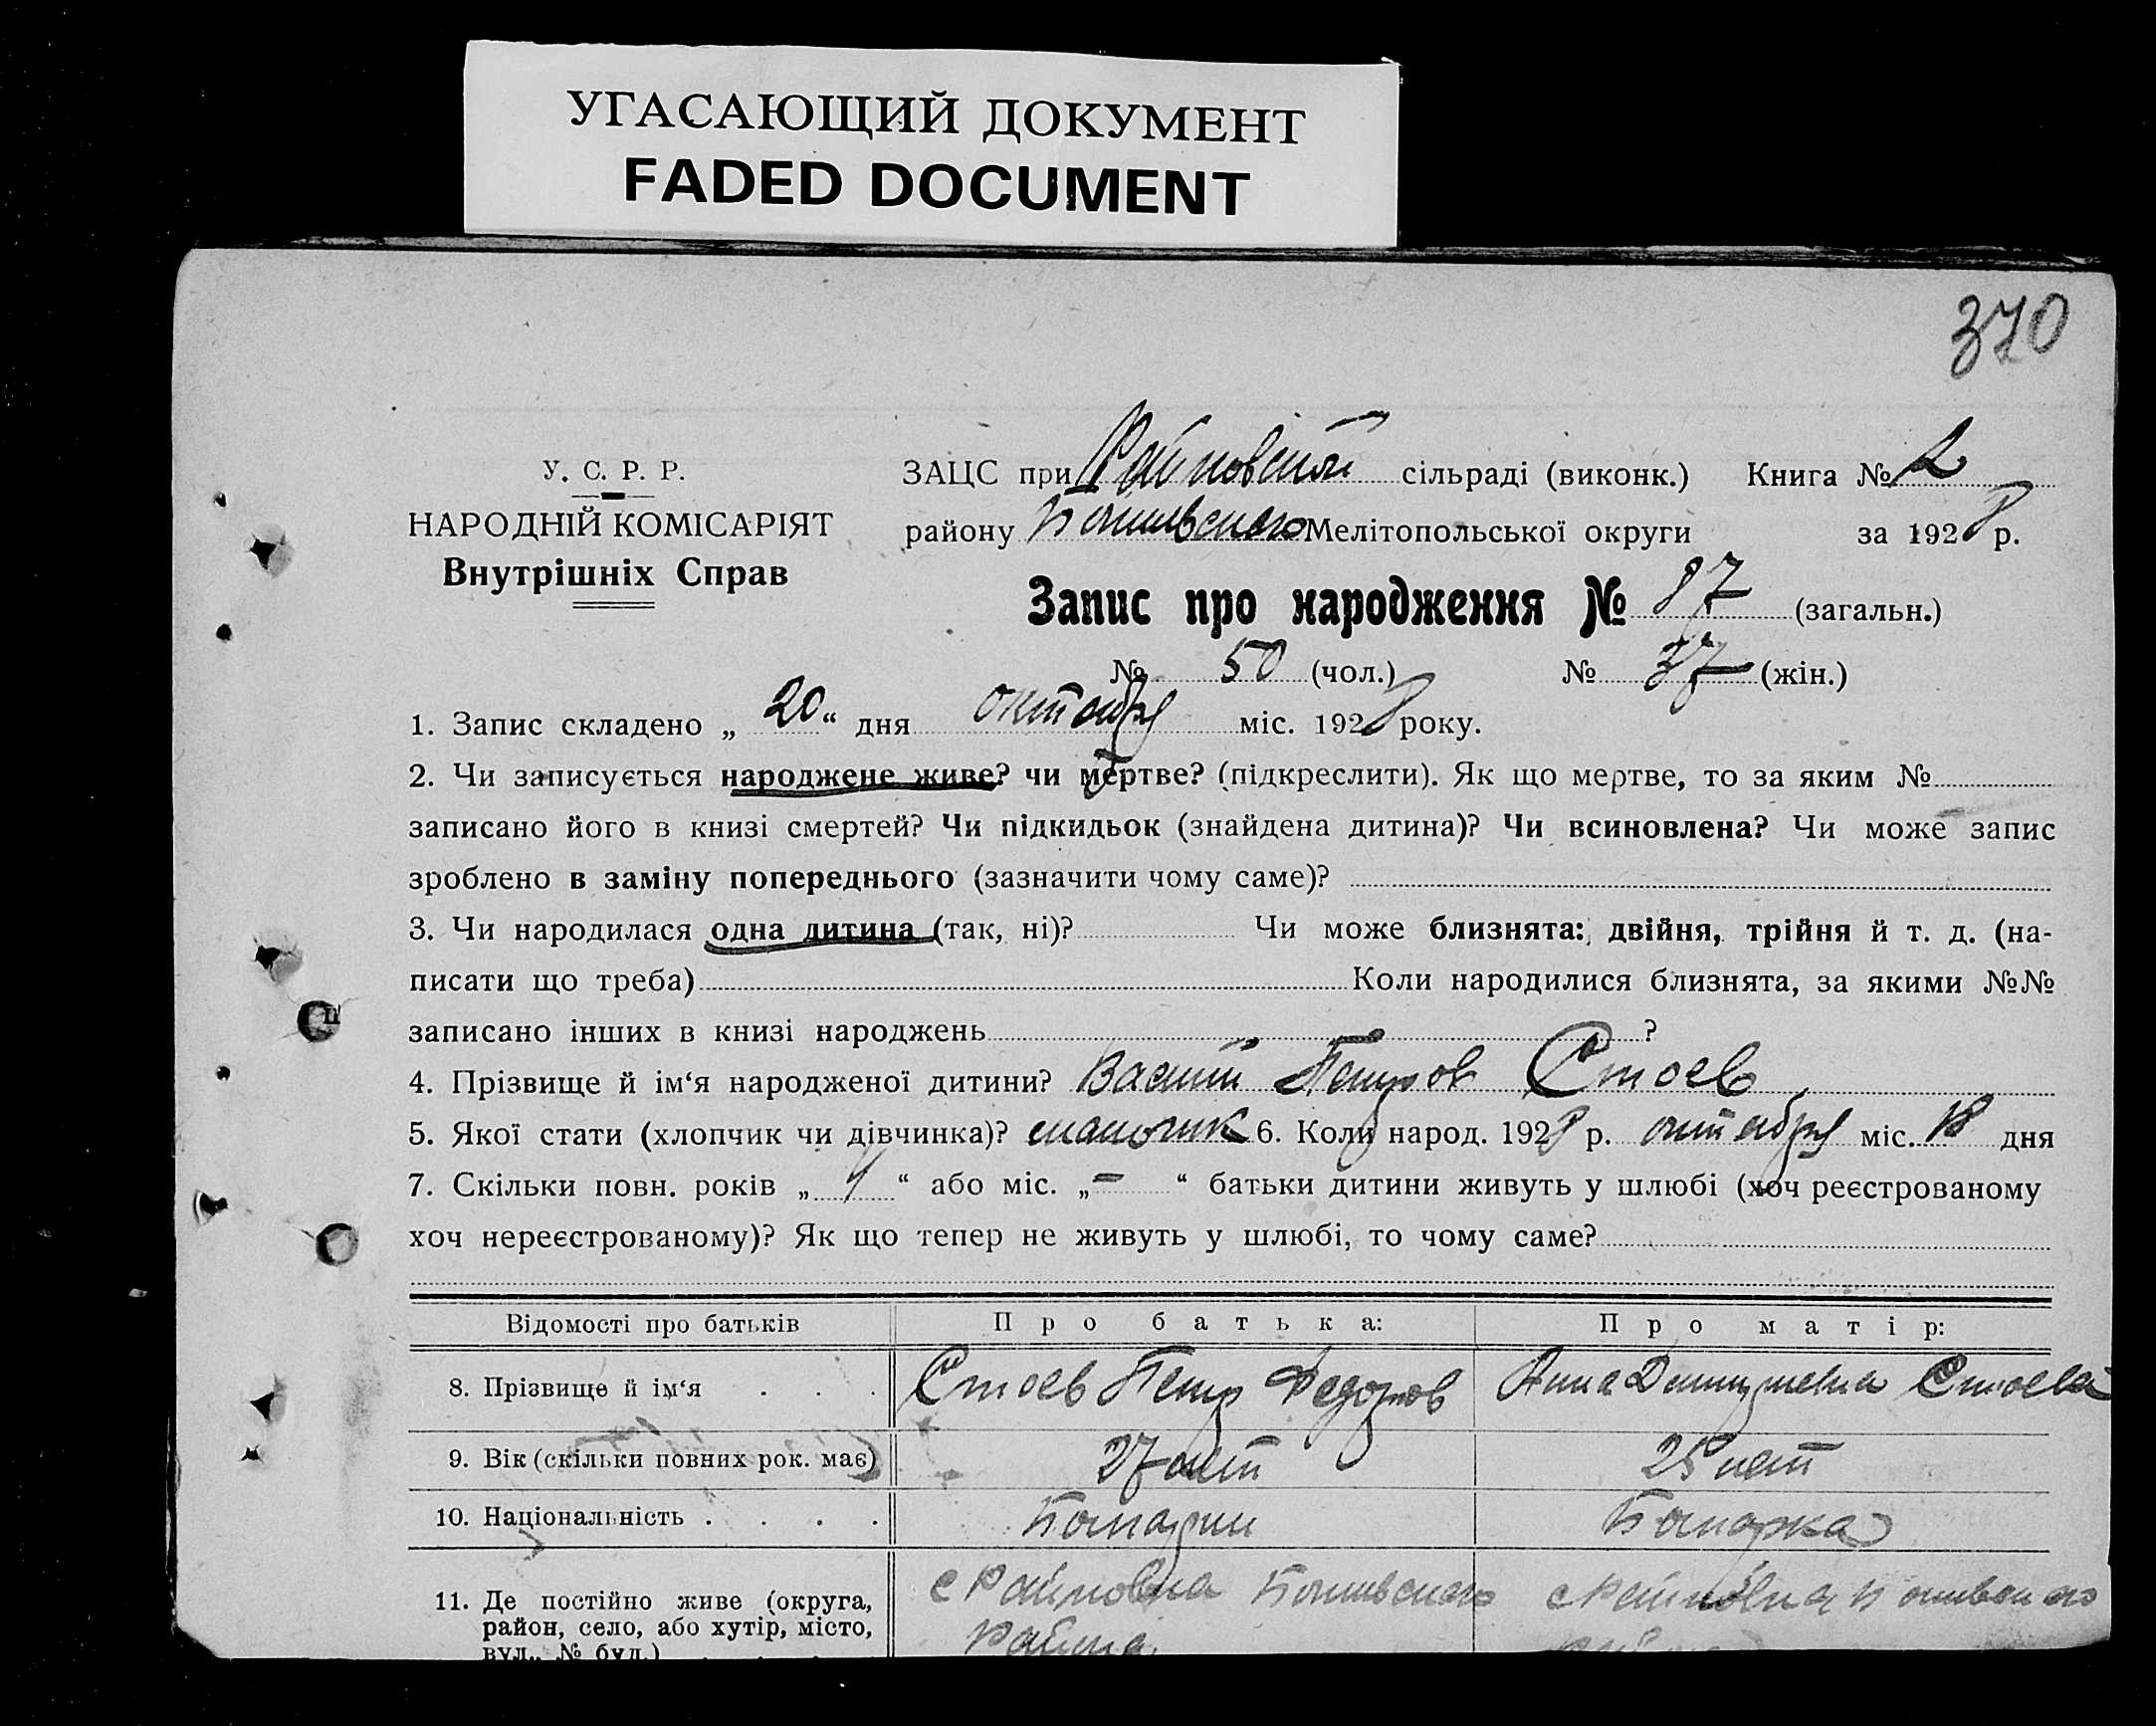 УГАСАЮЩИЙ ДОКУМЕНТ
FADED DOCUMENT
370
У. С. Р. Р.
НАРОДНІЙ КОМІСАРІЯТ
Внутрішніх Справ
ЗАЦС при Райновской сільраді (виконк.) Книга № 2
району Мелітопольської округи за 1928 р.
Запис про народження № 87 (загальн.)
№ 50 (чол.) № 37 (жін.)
1. Запис складено „ 20 “ дня октября міс. 1928 року.
2. Чи записується народжене живе? чи мертве? (підкреслити). Як що мертве, то за яким №
записано його в книзі смертей? Чи підкидьок (знайдена дитина)? Чи всиновлена? Чи може запис
зроблено в заміну попереднього (зазначити чому саме)?
3. Чи народилася одна дитина (так, ні)? Чи може близнята: двійня, трійня й т. д. (на-
писати що треба) Коли народилися близнята, за якими №№
записано інших в книзі народжень ?
4. Прізвище й ім‘я народженої дитини? Васили Петров Стоев
5. Якої стати (хлопчик чи дівчинка)? мальчик 6. Коли народ. 1928 р. октября міс. 18 дня
7. Скільки повн. років „ 4 “ або міс. „ – “ батьки дитини живуть у шлюбі (хоч реєстрованому
хоч нереєстрованому)? Як що тепер не живуть у шлюбі, то чому саме?
Відомості про батьків Про батька: Про матір:
8. Прізвище й ім‘я . . . Стоев Петр Федоров Анна Стоева
9. Вік (скільки повних рок. має) 27 лет 25 лет
10. Національність . . . . Болгарин Болгарка
11. Де постійно живе (округа, с Райновка с Райновка
район, село, або хутір, місто, района
вул., № буд.) . . .